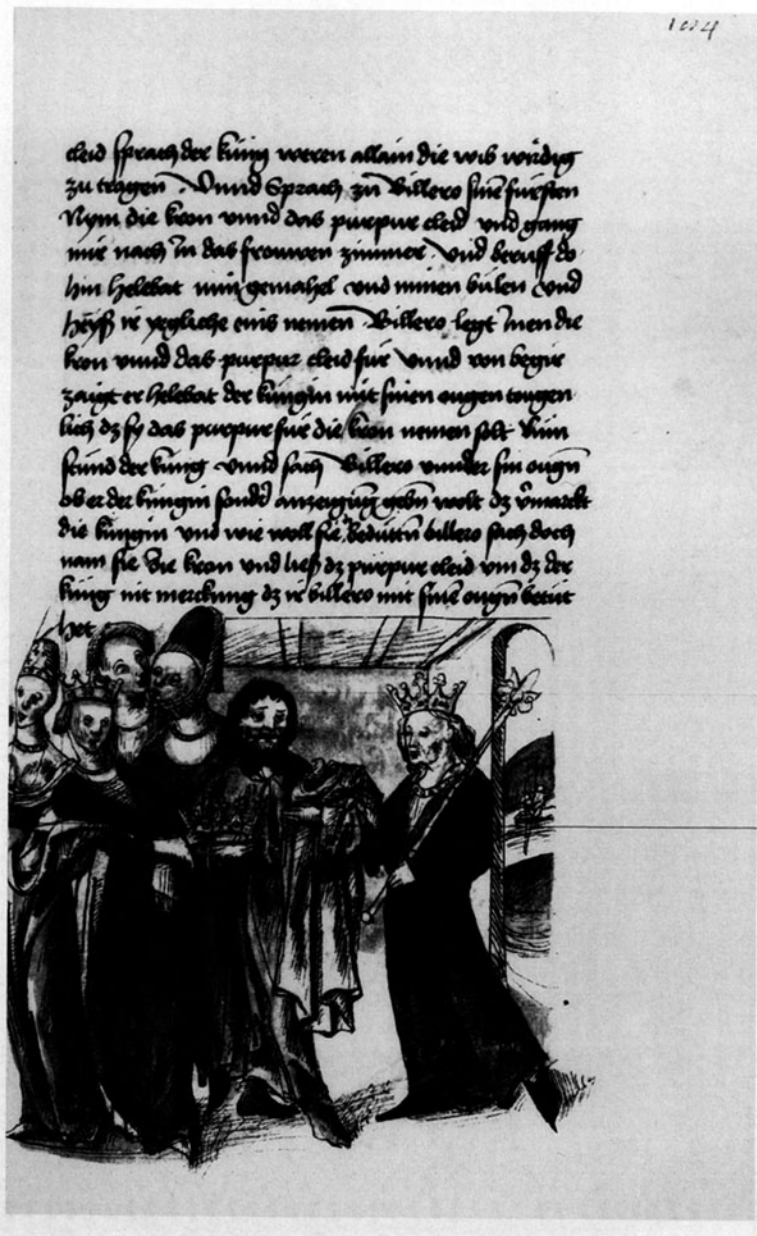 1004
cleid sprach der küng weren allain die wib wirdig
zu tragen . Vnnd Sprach zu Billero sinē fürsten
Nym die kron vnnd das purpur cleid vnd gang
mir nach In das frouwen zimmer . vnd beruff do
hin Helebat min gemahel vnd minen bulen Vnd
heyß ir yegliche eins nemen Billero legt Inen die
kron vnnd das purpur cleid für Vnnd von begir
zaigt er Helebat der küngin mit sinen ougen tougen
lich dz sy das purpur für die kron nemen solt Nun
stund der kung vnnd sach Billero vnnder sin ougn
ob er der kungin sondr anzeigung gebn wolt dz vmarckt
die küngin vnd wie woll sie Bedüttn billero sach doch
nam sie die kron vnd ließ dz purpur cleid vm dz der
küng nit merckung dz ir billero mit sinē ougn betüt
het